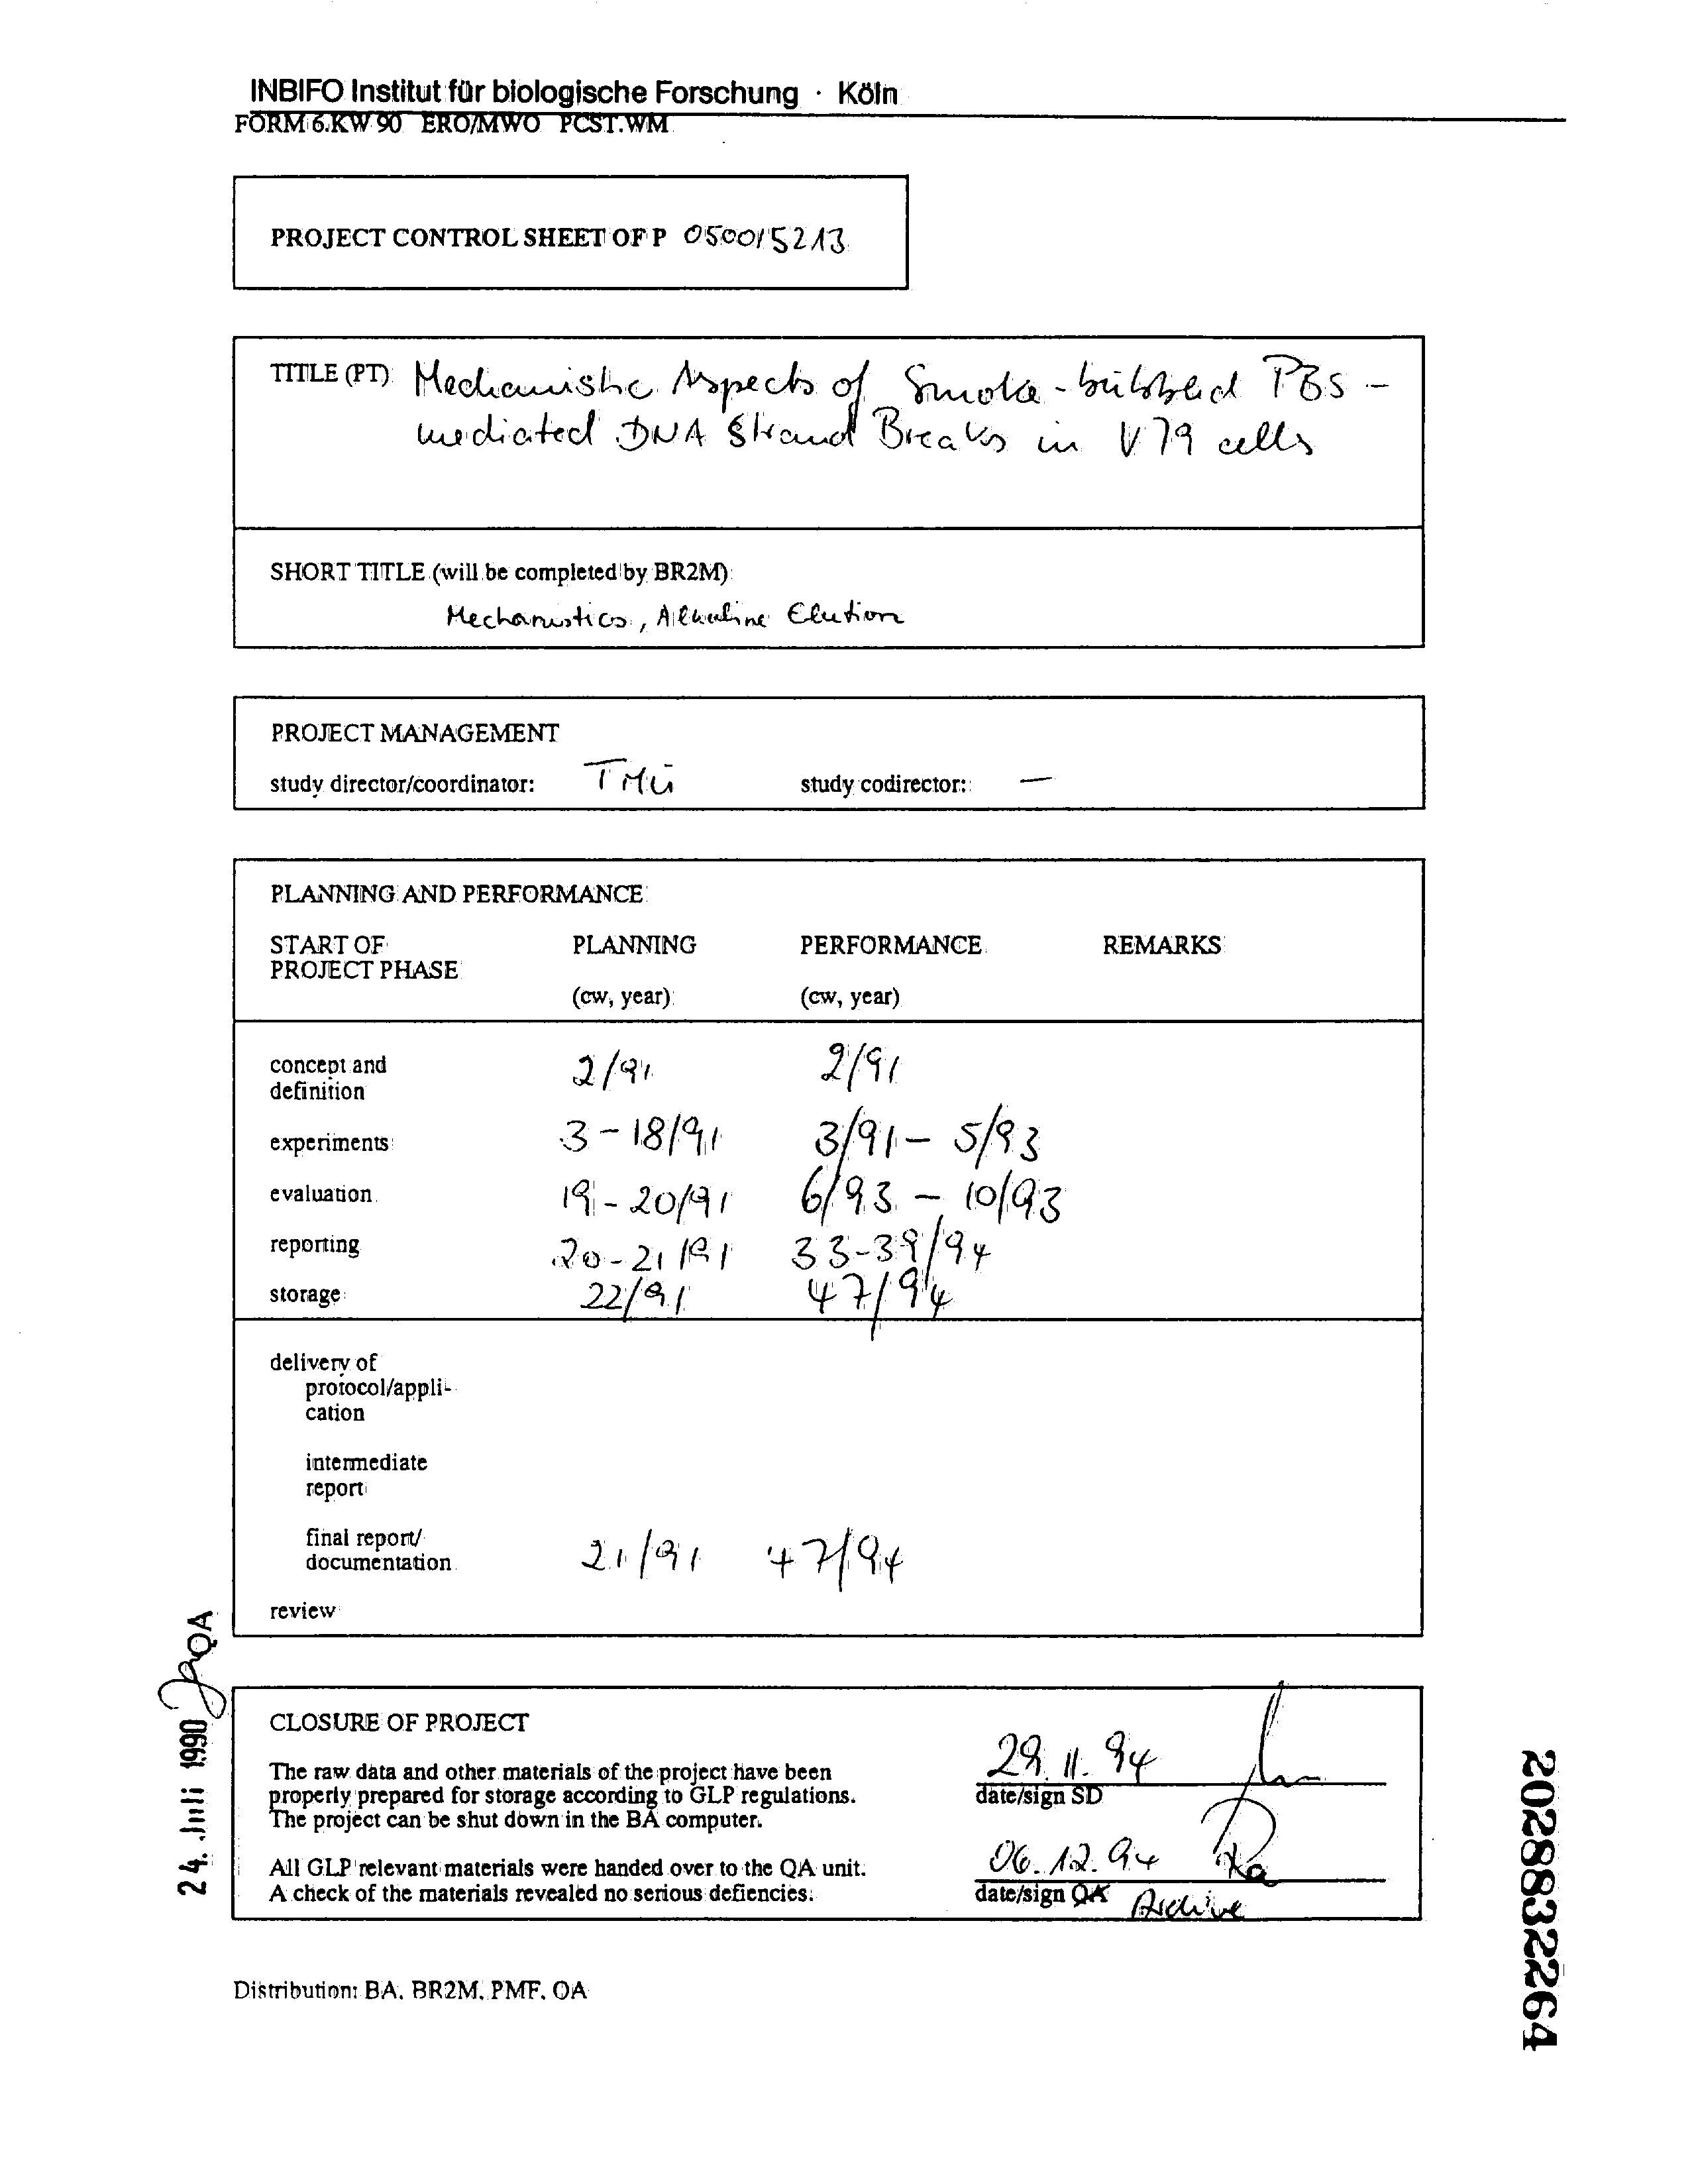 INBIFO Institut für biologische Forschung · Köln
FORM 6.KW 90 ERO/MWO PCST.WM
PROJECT CONTROL SHEET OF P 0500/5213
TITLE (PT) Mechanistic Aspects of Smoke-bubbled PBS-
mediated DNA Strand Breaks in V79 cells
SHORT TITLE (will be completed by BR2M)
Mechanistics, Alkaline Elution
PROJECT MANAGEMENT
study director/coordinator: TMü study codirector: —
PLANNING AND PERFORMANCE
START OF PLANNING PERFORMANCE REMARKS
PROJECT PHASE
(cw, year) (cw, year)
concept and 2/91 2/91
definition
experiments 3-18/91 3/91 - 5/93
evaluation 19-20/91 6/93 - 10/93
reporting 20-21/91 33-39/94
storage 22/91 47/94
delivery of
protocol/appli-
cation
intermediate
report
final report/
documentation 21/91 47/94
review
CLOSURE OF PROJECT
The raw data and other materials of the project have been 29.11.94
properly prepared for storage according to GLP regulations. date/sign SD
The project can be shut down in the BA computer.
All GLP relevant materials were handed over to the QA unit. 06.12.94 Ra
A check of the materials revealed no serious defiencies. date/sign QA Archive
Distribution: BA, BR2M, PMF, QA
24. Juli 1990 QA
2028832264